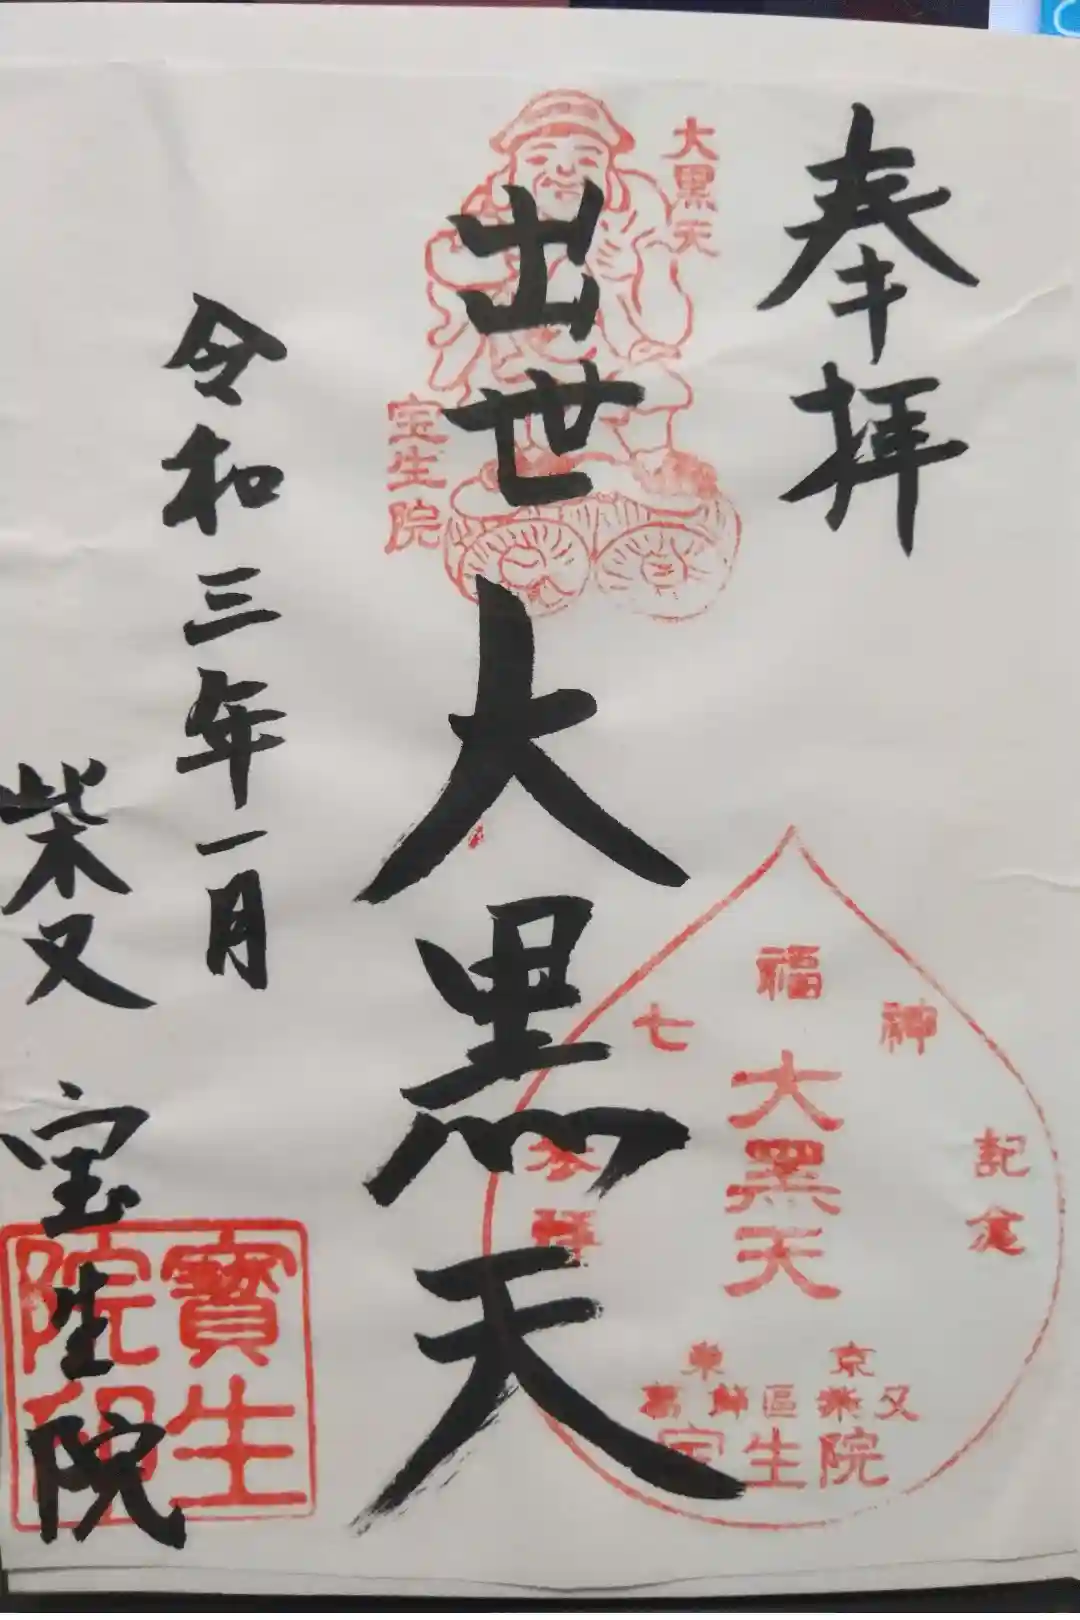 奉拝
大黒天
出世大黒天
宝生院
令和三年一月
柴又 宝生院
七福神
参拝
記念
大黒天
東京
葛飾區柴又
宝生院
寶生院印